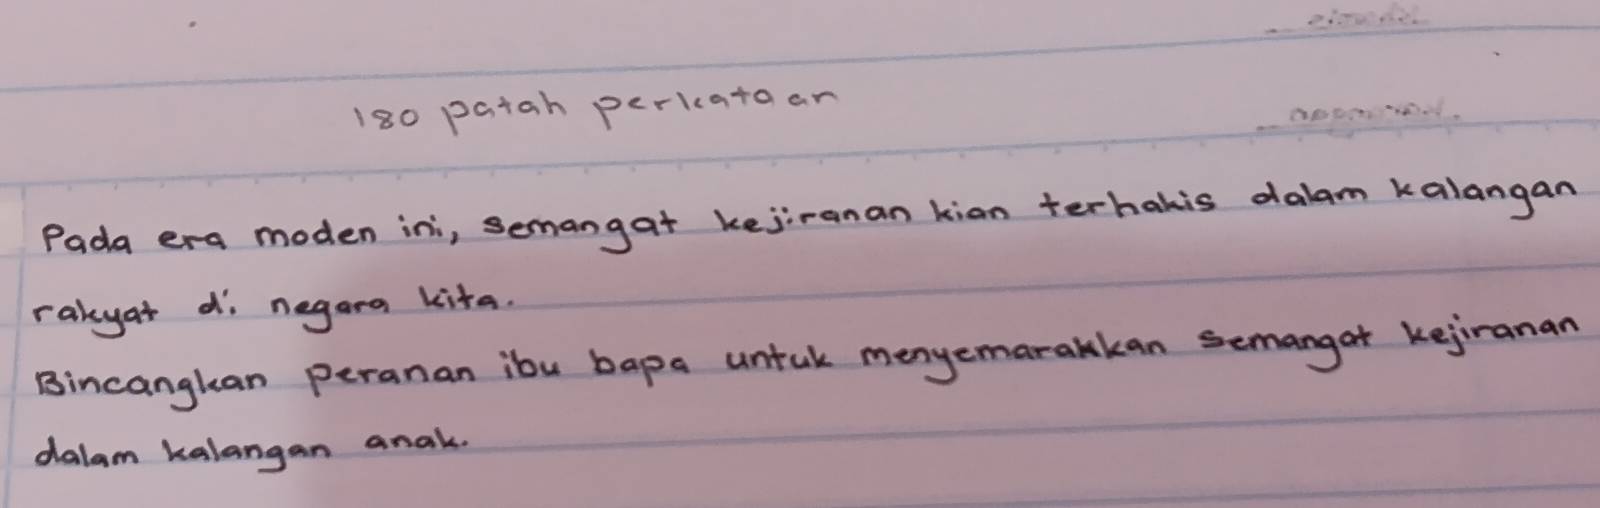 180 patah perkataan
Pada era moden ini, semangat kejiranan kian terhakis dalam kalangan
rakyat di negara kita.
Bincangkan peranan ibu bapa untuk menyemarakkan semangat kejiranan
dalam kalangan anak.